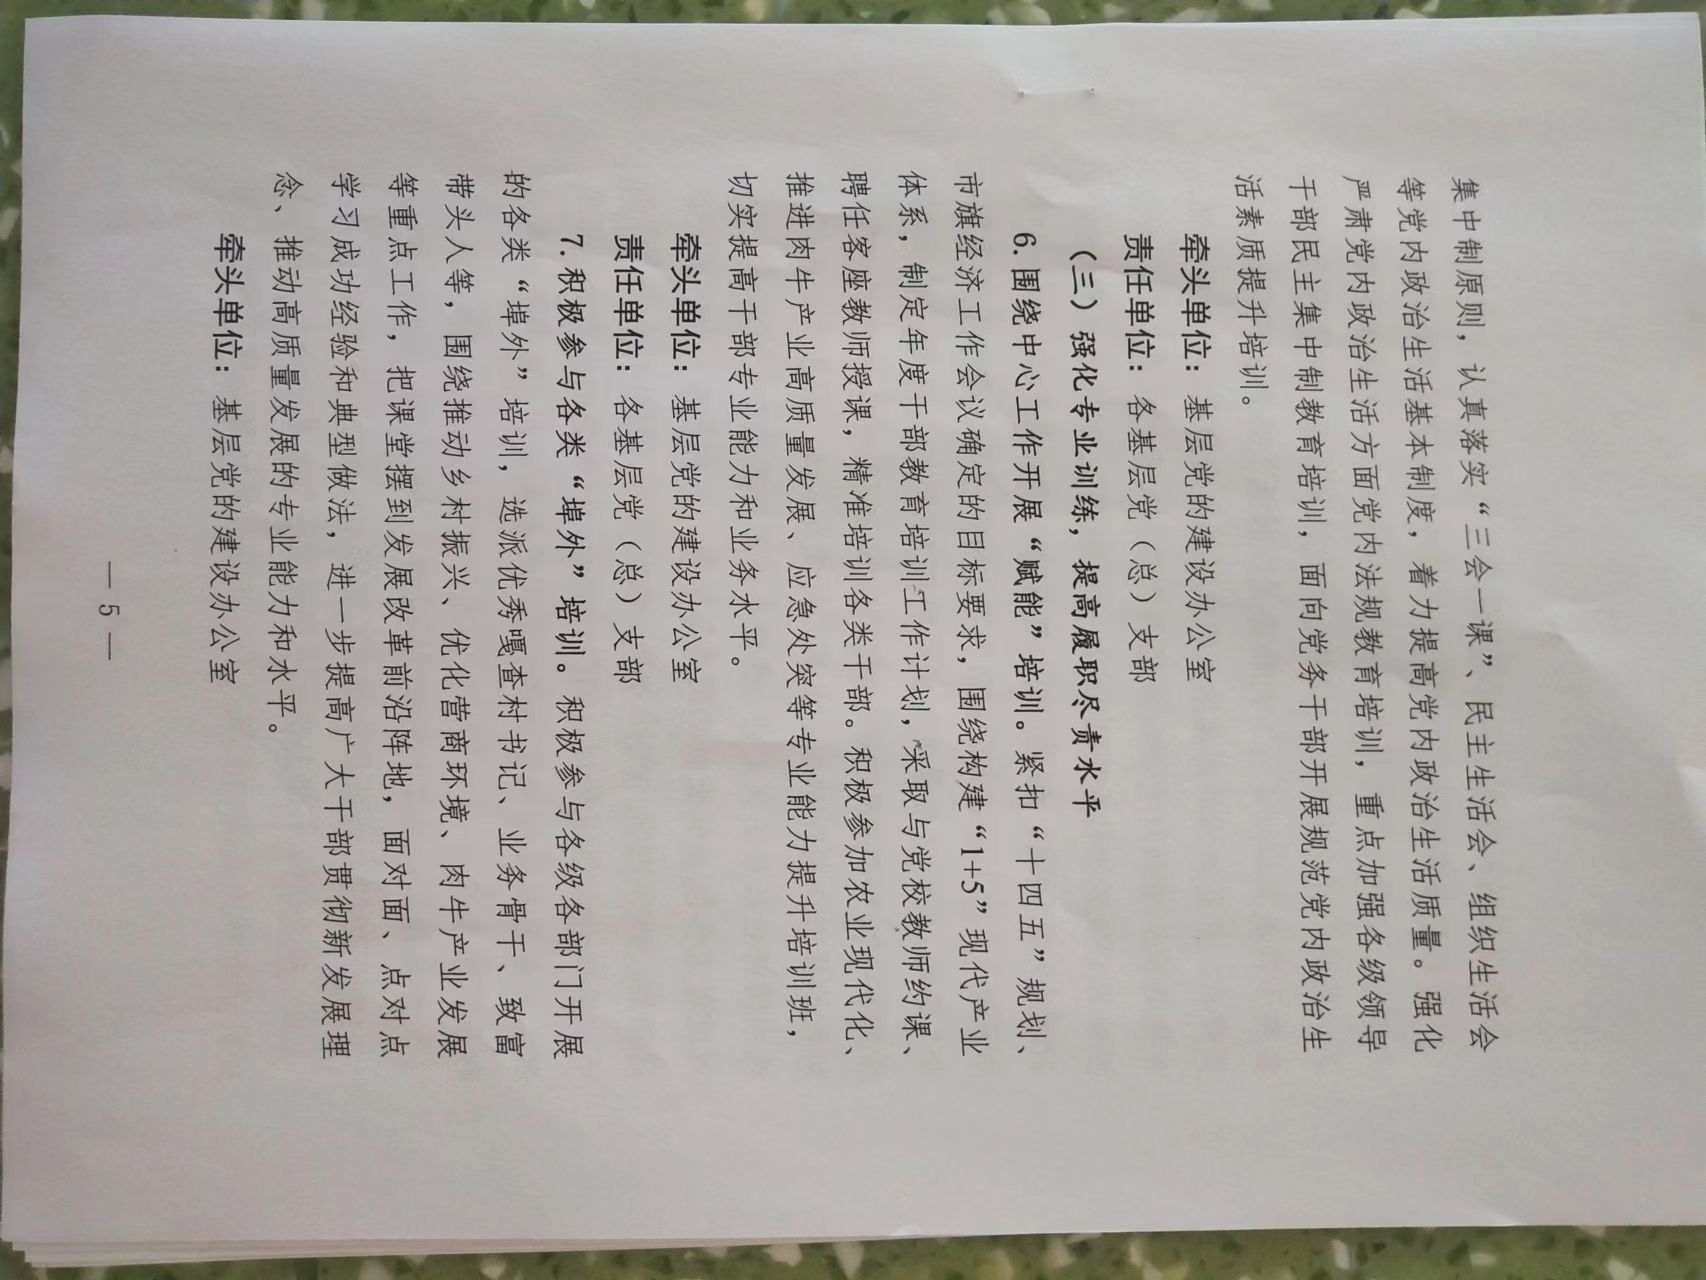 集中制原则，认真落实“三会一课”、民主生活会、组织生活会
等党内政治生活基本制度，着力提高党内政治生活质量。强化
严肃党内政治生活方面党内法规教育培训，重点加强各级领导
干部民主集中制教育培训，面向党务干部开展规范党内政治生
活素质提升培训。
牵头单位：基层党的建设办公室
责任单位：各基层党（总）支部
（三）强化专业训练，提高履职尽责水平
6.围绕中心工作开展“赋能”培训。紧扣“十四五”规划、
市旗经济工作会议确定的目标要求，围绕构建“1+5”现代产业
体系，制定年度干部教育培训工作计划，采取与党校教师约课、
聘任客座教师授课，精准培训各类干部。积极参加农业现代化、
推进肉牛产业高质量发展、应急处突等专业能力提升培训班，
切实提高干部专业能力和业务水平。
牵头单位：基层党的建设办公室
责任单位：各基层党（总）支部
7.积极参与各类“埠外”培训。积极参与各级各部门开展
的各类“埠外”培训，选派优秀嘎查村书记、业务骨干、致富
带头人等，围绕推动乡村振兴、优化营商环境、肉牛产业发展
等重点工作，把课堂摆到发展改革前沿阵地，面对面、点对点
学习成功经验和典型做法，进一步提高广大干部贯彻新发展理
念、推动高质量发展的专业能力和水平。
牵头单位：基层党的建设办公室
— 5 —